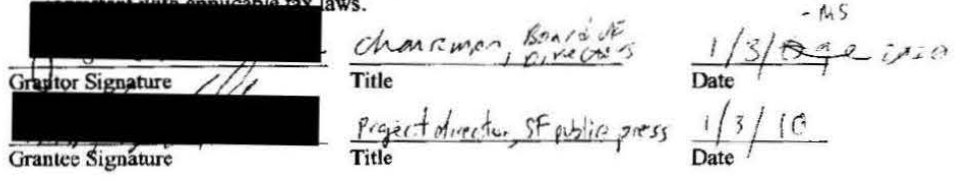 with applicable tax laws.
- MS
Chairman, Board of Directors 1/3/ 2010
Grantor Signature Title Date
Project director, SF public press 1/3/10
Grantee Signature Title Date